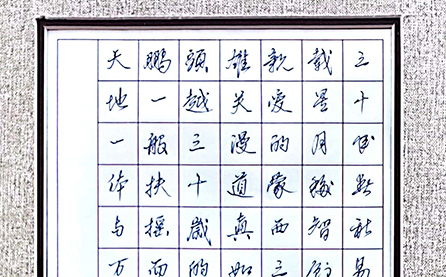 三十點易
載星月智
親愛的蒙西三
雄关漫道真如
頭越三十歲的
鹏一般扶摇而
天地一体与万